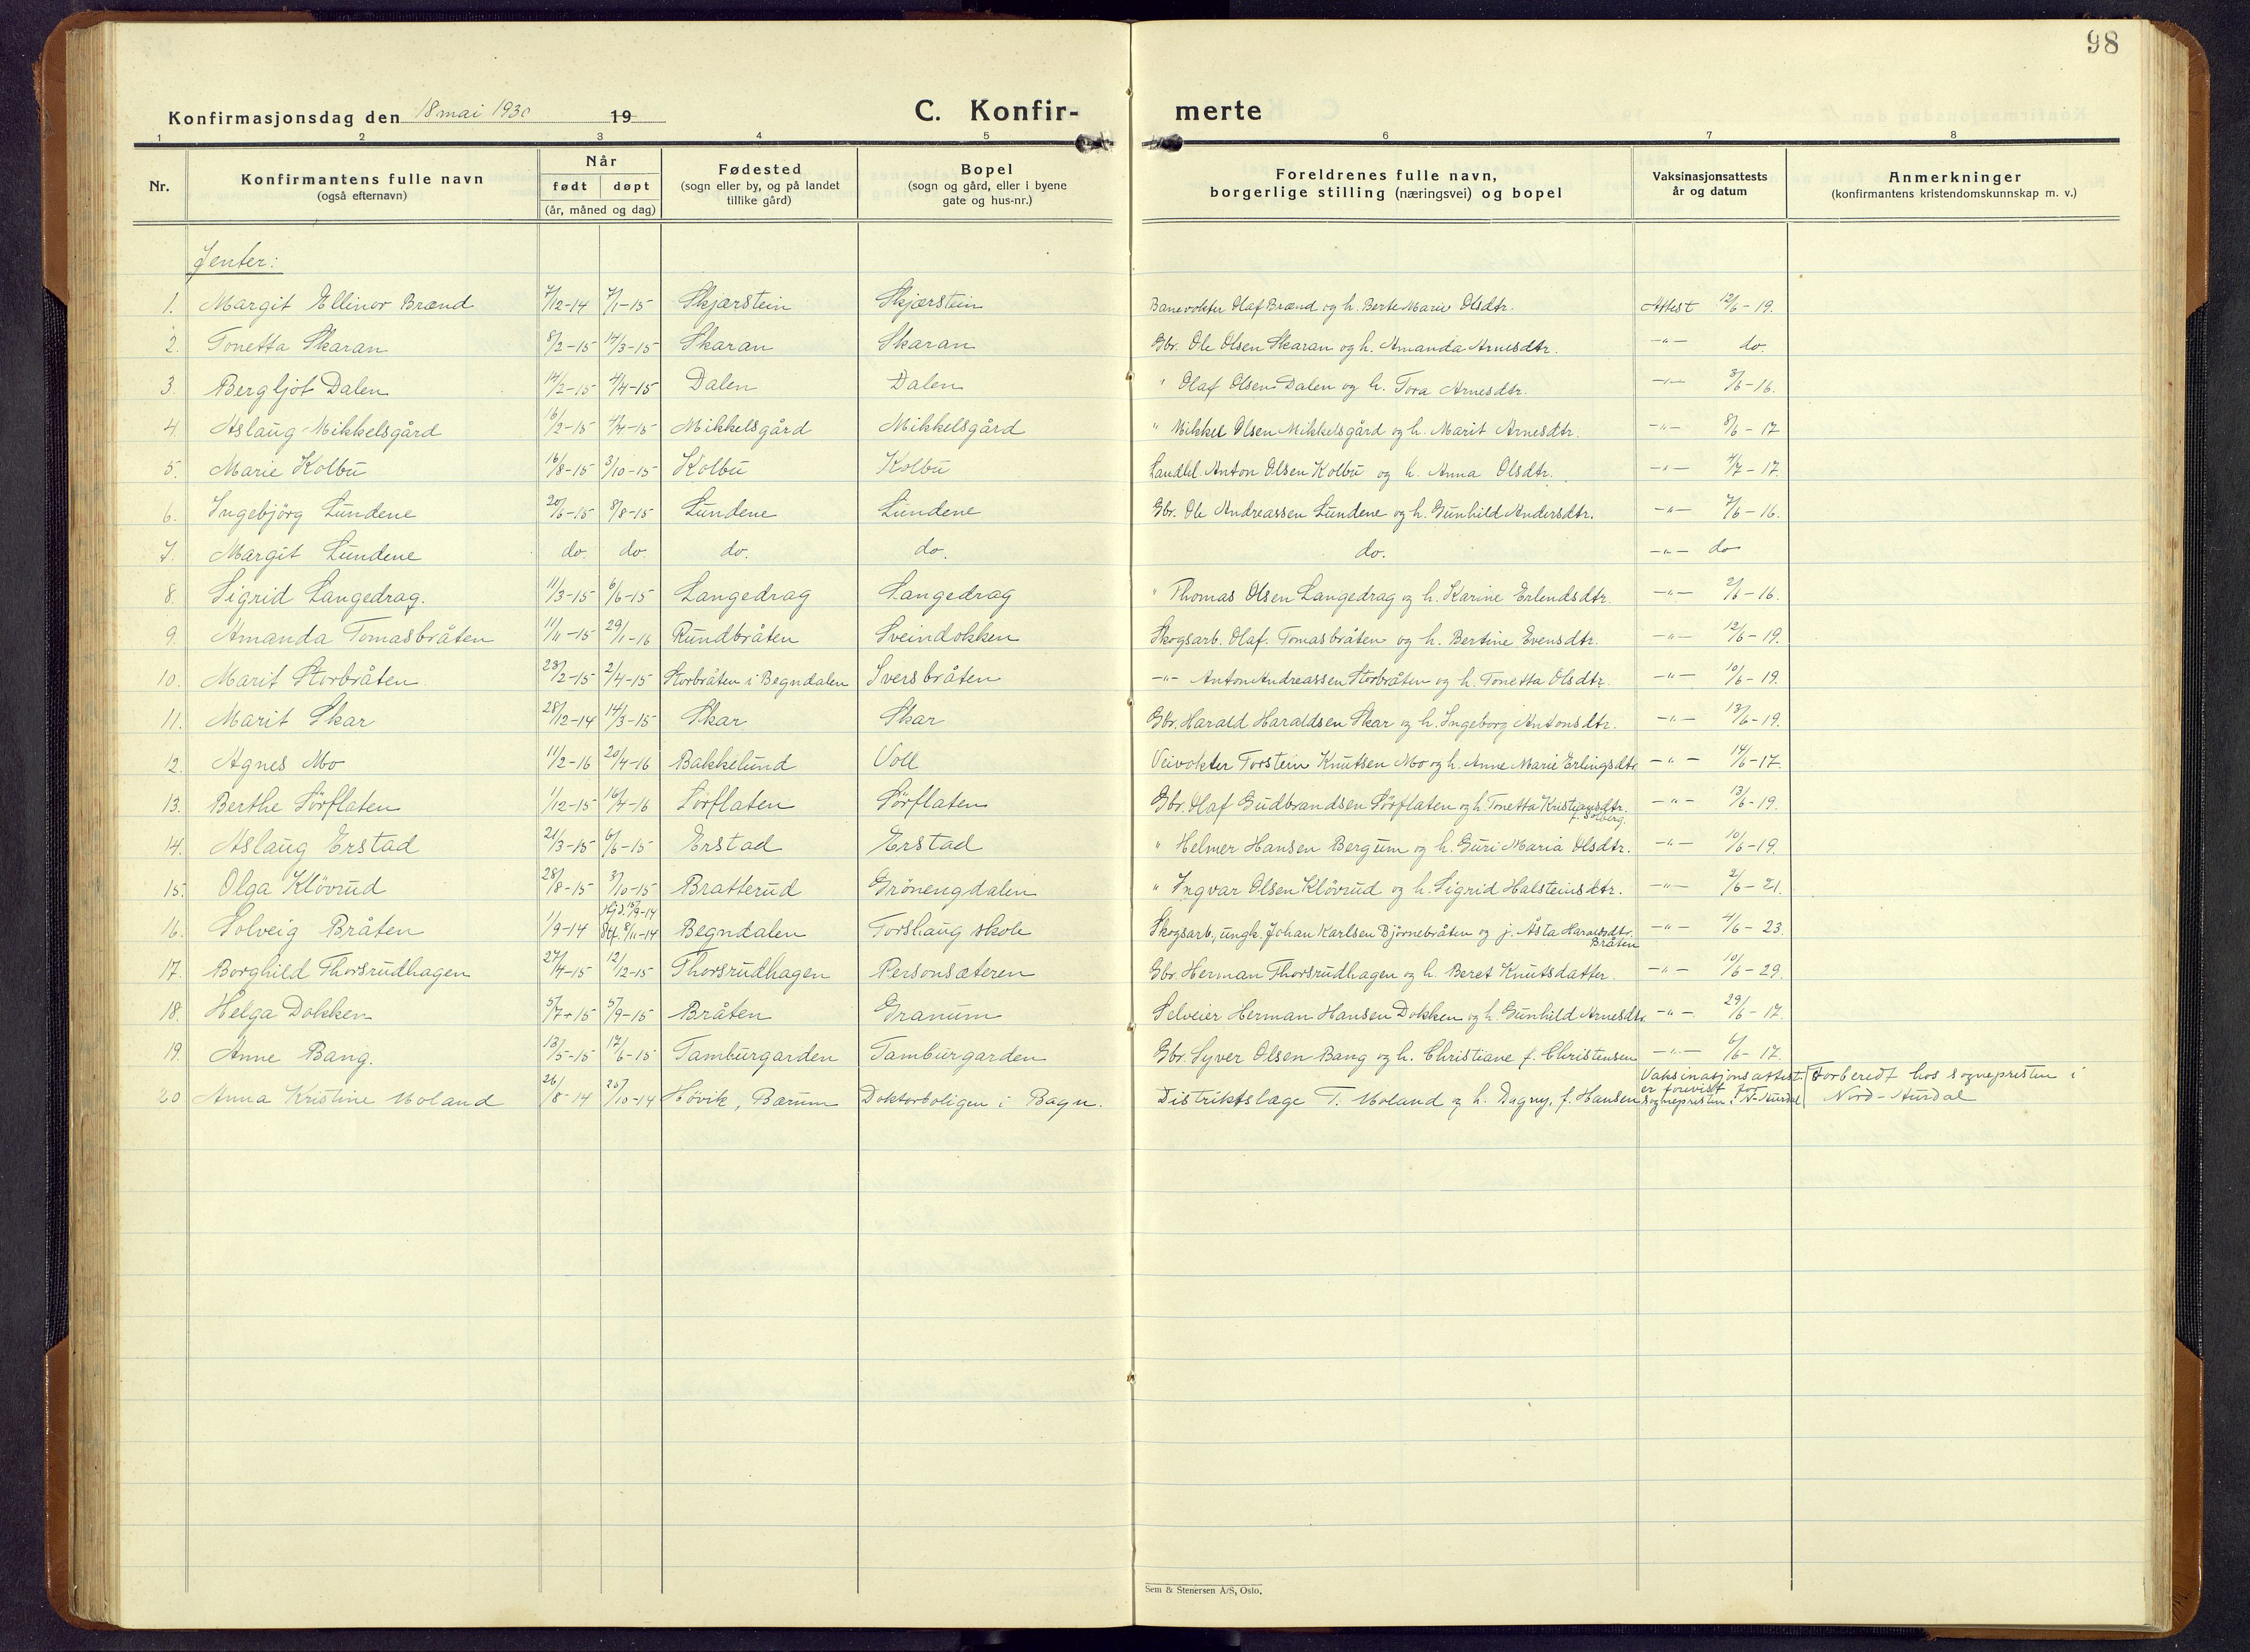 98
Konfirmasjonsdag den 18 mai 1930 19 C. Konfir- merte
1 2 3 4 5 6 7 8
Nr. Konfirmantens fulle navn (også efternavn) Når født døpt (år, måned og dag) Fødested (sogn eller by, og på landet tillike gård) Bopel (sogn og gård, eller i byene gate og hus-nr.) Foreldrenes fulle navn, borgerlige stilling (næringsvei) og bopel Vaksinasjonsattests år og datum Anmerkninger (konfirmantens kristendomskunnskap m. v.)
Jenter:
1. Margit Ellinor Brænd 7/12-14 7/1-15 Skjærstein Skjærstein Banevokter Olaf Brænd og h. Berte Marie Olsdtr. Attest 12/6-19.
2. Tonetta Skaran 8/2-15 14/3-15 Skaran Skaran Gbr. Ole Olsen Skaran og h. Amanda Arnesdtr. -"- do.
3. Bergljot Dalen 14/2-15 4/4-15 Dalen Dalen " Olaf Olsen Dalen og h. Tora Arnesdtr. -"- 3/6-16.
4. Aslaug Mikkelsgård 16/2-15 4/4-15 Mikkelsgård Mikkelsgård " Mikkel Olsen Mikkelsgård og h. Marit Arnesdtr. -"- 8/6-17
5. Marie Kolbu 16/8-15 3/10-15 Kolbu Kolbu Landhl. Anton Olsen Kolbu og h. Anna Olsdtr. -"- 4/7-17.
6. Ingebjörg Lundene 20/6-15 8/8-15 Lundene Lundene Gbr. Ole Andreassen Lundene og h. Gunhild Andersdtr. -"- 7/6-16.
7. Margit Lundene do. do. do. do. do. -"- do
8. Sigrid Langedrag. 11/3-15 6/6-15 Langedrag Langedrag " Thomas Olsen Langedrag og h. Karine Erlendsdtr. -"- 2/6-16.
9. Amanda Tomasbråten 11/11-15 29/1-16 Rundbråten Sveindokken Skogsarb. Olaf. Tomasbråten og h. Bertine Evensdtr. -"- 12/6-19.
10. Marit Storbråten 23/2-15 2/4-15 Storbråten i Begndalen Sversbråten -"- Anton Andreassen Storbråten og h. Tonetta Olsdtr. -"- 10/6-19.
11. Marit Skar 28/12-14 14/3-15 Skar Skar Gbr. Harald Haraldsen Skar og h. Ingeborg Antonsdtr. -"- 13/6-19.
12. Agnes Mo 11/2-16 20/4-16 Bakkelund Voll Veivokter Torstein Knutsen Mo og h. Anne Marie Erlingsdtr. -"- 14/6-17.
13. Berthe Sörflaten 1/12-15 16/4-16 Sörflaten Sörflaten Gbr. Olaf Gudbrandsen Sörflaten og h. Tonetta Kristiansdtr. f. Solberg. -"- 13/6-19.
14. Aslaug Erstad 21/3-15 6/6-15 Erstad Erstad " Helmer Hansen Bergum og h. Guri Maria Olsdtr. -"- 10/6-19.
15. Olga Klövrud 28/8-15 3/10-15 Bratterud Grönengdalen " Ingvar Olsen Klövrud og h. Sigrid Halsteinsdtr. -"- 2/6-21.
16. Solveig Bråten 1/9-14 Hjd. 15/9-14 Stf. 8/11-14 Begndalen Torshaug skole Skogsarb., ungk. Johan Karlsen Björnebråten og j. Åsta Haraldsdtr. Bråten -"- 4/6-23.
17. Borghild Thorsrudhagen 27/4-15 12/12-15 Thorsrudhagen Personsæteren Gbr. Herman Thorsrudhagen og h. Beret Knutsdatter. -"- 10/6-29.
18. Helga Dokken 5/7-15 5/9-15 Bråten Granum Selveier Herman Hansen Dokken og h. Gunhild Arnesdtr. -"- 29/6-17.
19. Anne Bang. 13/5-15 17/6-15 Tamburgarden Tamburgarden Gbr. Syver Olsen Bang og h. Christiane f. Christensen -"- 6/6-17.
20 Anna Kristine Moland 26/8-14 25/10-14 Hövik, Bærum Doktorboligen i Bagn. Distriktslæge T. Moland og h. Dagny, f. Hansen Vaksinasjonsattest er forevist for sognepresten i N-Aurdal Forberedt hos sognepresten i Nord-Aurdal
Sem & Stenersen A/S, Oslo.